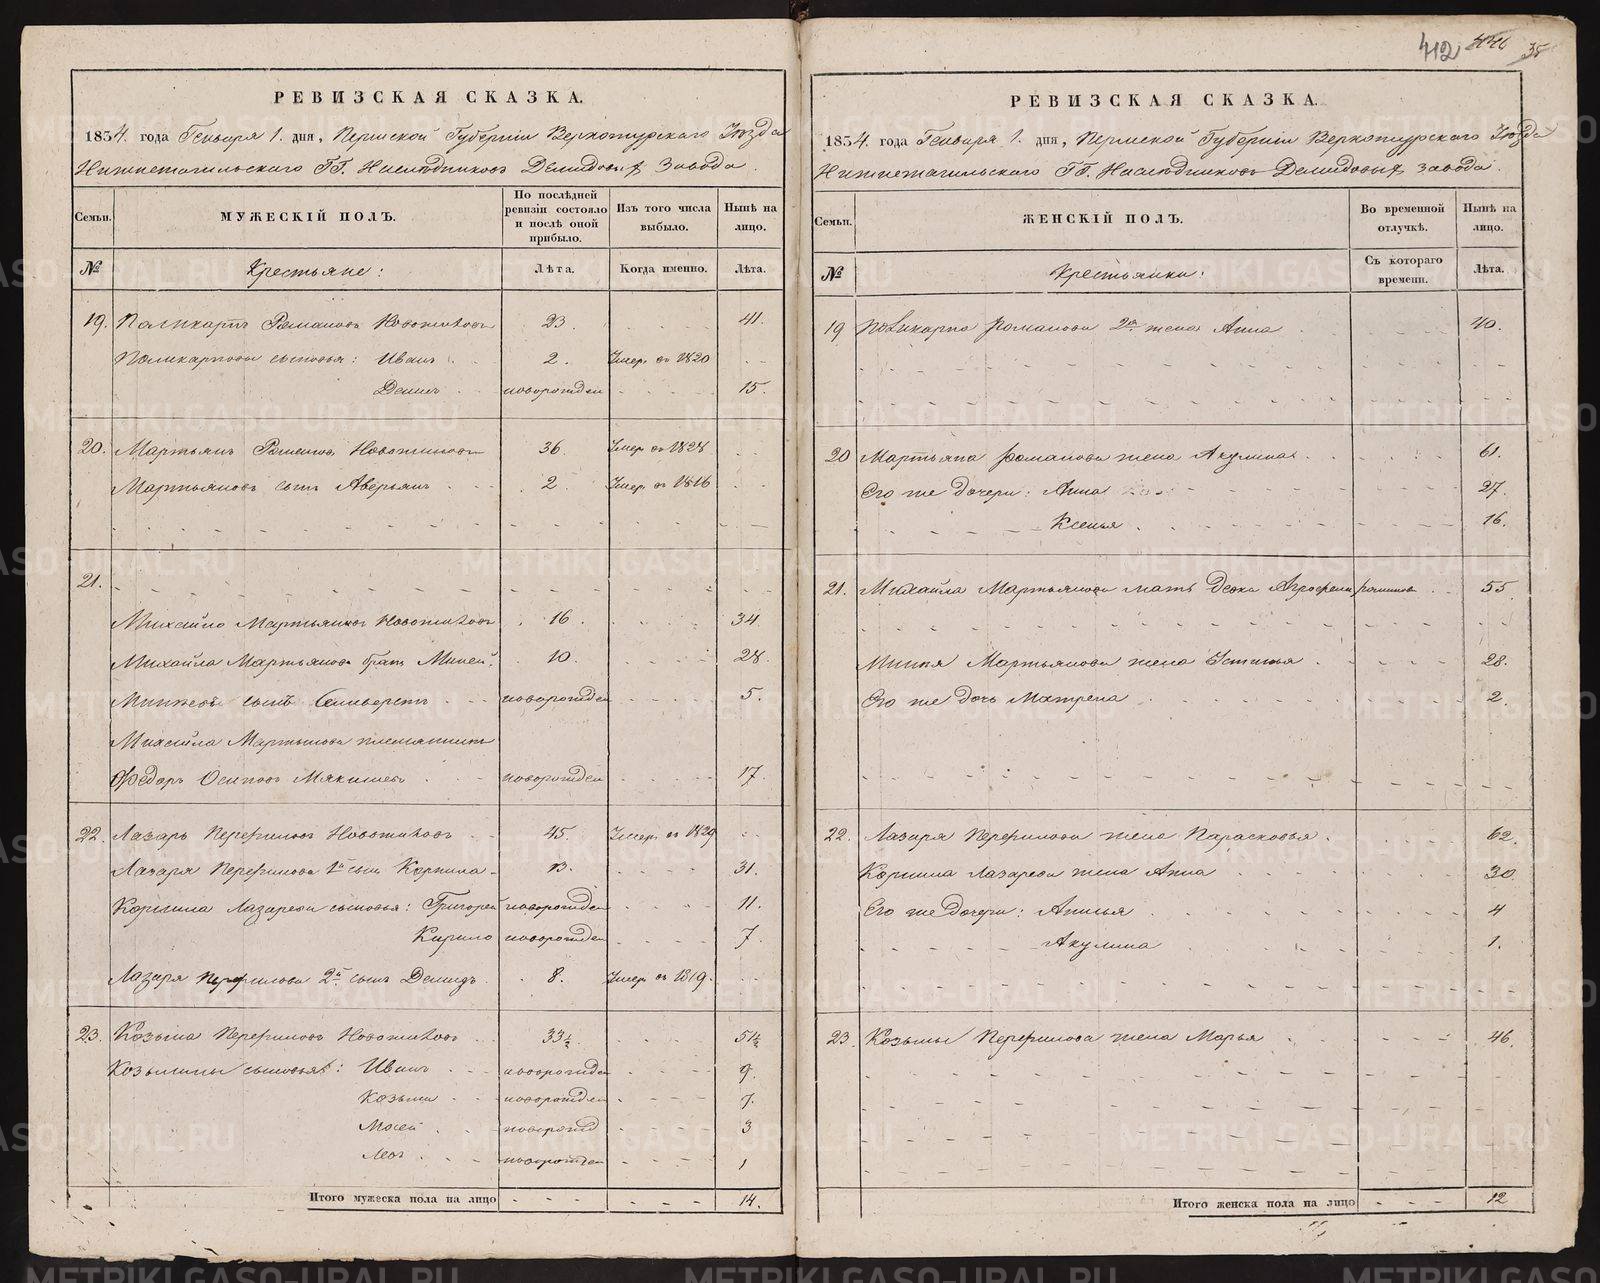 412 446 35
РЕВИЗСКАЯ СКАЗКА.
1834. года Генваря 1. дня, Пермской Губерніи Верхотурскаго Уѣзда
Нижнетагильскаго ГГ. Наслѣдниковъ Демидовыхъ завода.
Семьи.
МУЖЕСКІЙ ПОЛЪ.
По послѣдней ревизіи состояло и послѣ оной прибыло.
Изъ того числа выбыло.
Нынѣ на лицо.
№
Крестьяне:
Лѣта.
Когда именно.
Лѣта.
19. Поликарпъ Романовъ Новожиловъ 23. 41.
Поликарповы сыновья: Иванъ 2. Умер. въ 1820
новорожден 15.
20. Мартьянъ Романовъ Новожиловъ 36. Умер въ 1828
Мартьяновъ сынъ Аверьянъ 2. Умер. въ 1816
21.
Михайло Мартьяновъ Новожиловъ 16. 34
Михайла Мартьянова братъ Миней. 10. 28.
сынъ Селиверстъ новорожден 5.
Михайла Мартьянова племянникъ
Федоръ Осиповъ Мякишевъ новорожден 17.
22. Лазарь Перфиловъ Новожиловъ 45. Умер. въ 1829
Лазаря Перфилова 1й сынъ Корнила 13. 31.
Корнила Лазарева сыновья: Григорей новорожден 11.
Кирило новорожден 7.
Лазаря Перфилова 2й сынъ Демидъ 8. Умер въ 1819.
23. Козьма Перфиловъ Новожиловъ 33½ 51½
Козьмины сыновья: Иванъ новорожден 9.
Козьма новорожден 7.
Мосей новорожд 3
Левъ новорожден 1
Итого мужеска пола на лицо 14.
РЕВИЗСКАЯ СКАЗКА.
1834. года Генваря 1. дня, Пермской Губерніи Верхотурскаго Уѣзда
Нижнетагильскаго ГГ. Наслѣдниковъ Демидовыхъ завода.
Семьи.
ЖЕНСКІЙ ПОЛЪ.
Во временной отлучкѣ.
Нынѣ на лицо.
№
Крестьянки:
Съ котораго времени.
Лѣта.
19 Поликарпа Романова 2я жена Анна 40.
20 Мартьяна Романова жена Акулина 61.
Его же дочери: Анна 27.
Ксенья 16.
21. Михайла Мартьянова мать 55
Минея Мартьянова жена Устинья 28.
Его же дочь Матрена 2.
22. Лазаря Перфилова жена Парасковья 62.
Корнила Лазарева жена Анна 30.
Его же дочери: Анисья 4
Акулина 1.
23. Козьмы Перфилова жена Марья 46.
Итого женска пола на лицо 12
METRIKI.GASO-URAL.RU